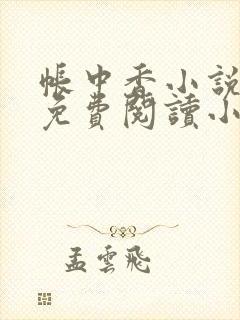 帳中香小說
免費閱讀小
孟雲飛